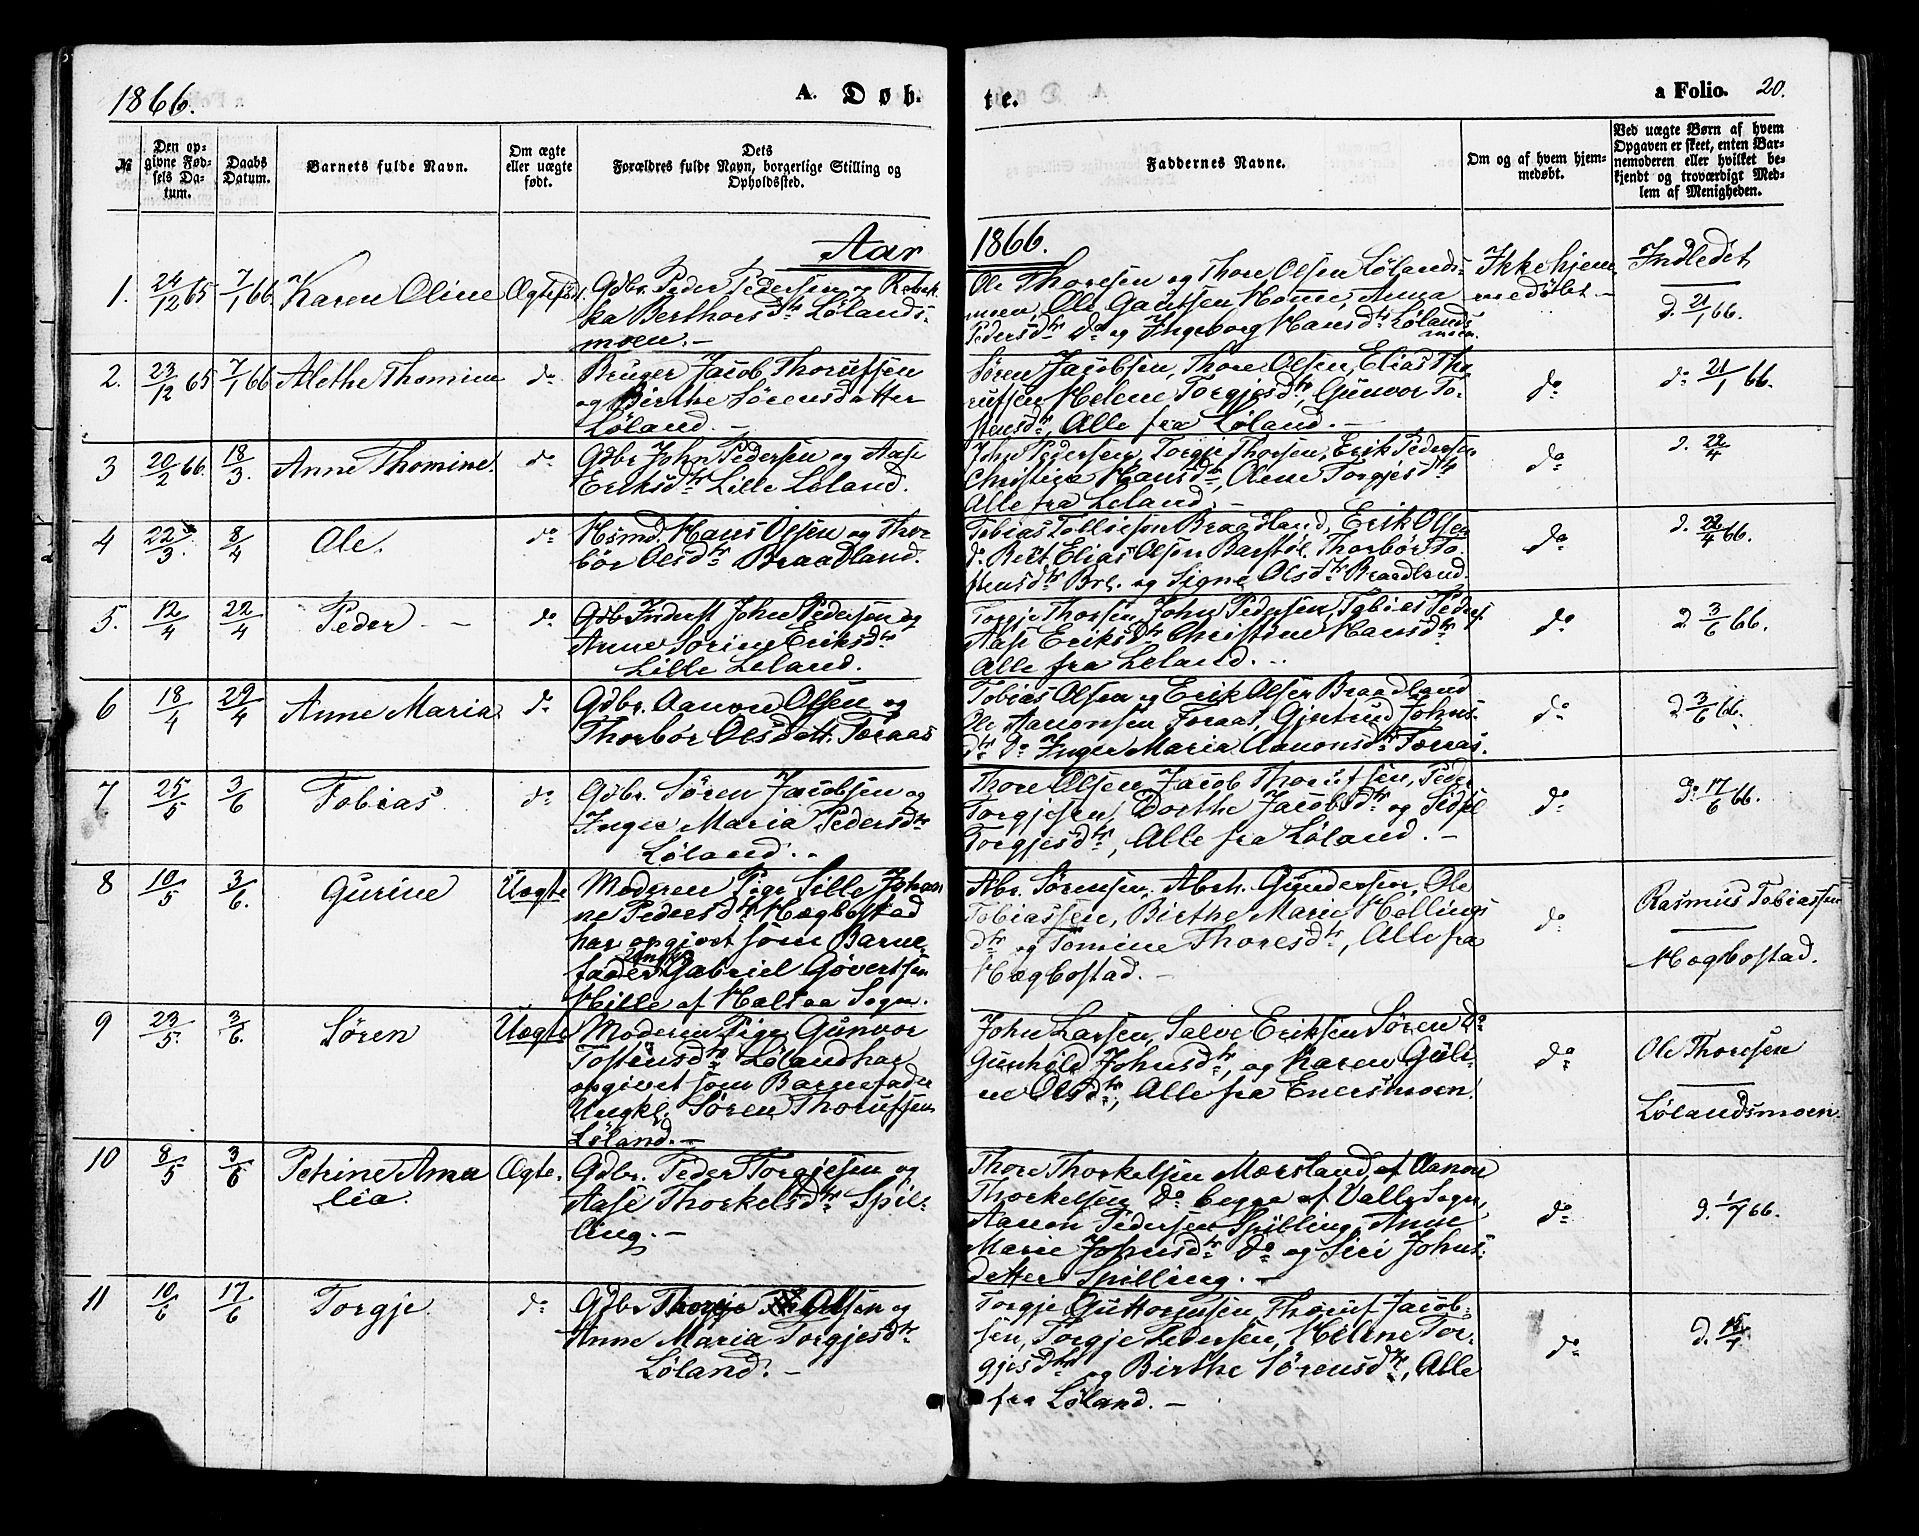 1866.
A. Døb
te.
a Folio. 20.
№
Den op-
givne Fød-
sels Da-
tum.
Daabs
Datum.
Barnets fulde Navn.
Om ægte
eller uægte
født.
Dets
Forældres fulde Navn, borgerlige Stilling og
Opholdssted.
Faddernes Navne.
Om og af hvem hjem-
medøbt.
Ved uægte Børn af hvem
Opgaven er skeet, enten Bar-
nemoderen eller hvilket be-
kjendt og troværdigt Med-
lem af Menigheden.
Aar
1866.
1. 24/12 65 7/1 66. Karen Oline Ægtefød.
Gdbr. Peder Pedersen og Rebek-
ka Berthorsdtr Lølands-
moen. -
Ole Thoresen og Thore Olsen Lølands-
moen, Ole Gautsen Home, Anna
Pedersdtr do og Ingeborg Hansdtr Lølands
moen.
Ikke hjem
medøbt. -
Indledet
d. 21/1 66.
2. 23/12 65 7/1 66 Alethe Thomine do
Bruger Jacob Thorufsen
og Birthe Sørensdatter
Løland. -
Søren Jacobsen, Thore Olsen, Elias Tho
rufsen Helene Torgjesdtr, Gunvor To-
stensdtr, Alle fra Løland. -
do
do 21/1 66.
3 20/2 66. 18/3. Anne Thomine. do
Gdbr. John Pedersen og Aase
Eriksdtr Lille Leland.
John Pedersen, Torgje Thorsen, Erik Pedersen
Christine Hansdtr, Olene Torgjesdtr
Alle fra Leland. -
do
d. 22/4
4 22/3. 8/4 Ole. do
Hsmd. Hans Olsen og Thor-
bør Olsdtr Braadland.
Tobias Tollefsen Braadland, Erik Olsen
do Rect, Elias Olsen Barstøl, Thorbør To-
stensdtr Brl. og Signe Olsdtr Braadland.
do
d. 22/4 66.
5. 12/4 22/4 Peder - do
Gdbr Inderst John Pedersen og
Anne Sørine Eriksdtr
Lille Leland.
Torgje Thorsen, John Pedersen, Tobias Peders.
Aase Eriksdtr Christine Hansdtr
Alle fra Leland. -
do
d. 3/6 66.
6 18/4 29/4 Anne Maria. do
Gdbr. Aanon Olsen og
Thorbør Olsdatt. Foraas
Tobias Olsen og Erik Olsen Braadland
Ole Aanonsen Foraas, Gjertrud Johns-
dtr do Inger Maria Aanonsdtr Foraas.
do
d 3/6 66.
7 25/5 3/6 Tobias. do
Gdbr. Søren Jacobsen og
Inger Maria Pedersdtr
Løland. -
Thore Olsen, Jacob Thorufsen, Peder
Torgjesen, Dorthe Jacobsdtr og Sidsel
Torgjesdtr, Alle fra Løland. -
do
do 17/6 66.
8 10/5 3/6. Gurine Uægte
Moderen Pige Sille Johan
ne Pedersdtr Hægbostad
har opgivet som Barne-
fader Gabriel Gøvertsen
Hille af Halsaa Sogn.
Abr. Sørensen, Abrh. Gundersen, Ole
Tobiassen, Birthe Marie Hellings
dtr og Tomine Thoresdtr, Alle fra
Hægbostad. -
do
Rasmus Tobiassen
Hægbostad.
9 23/5. 3/6. Søren Uægte
Moderen Pige Gunvor
Tostensdtr Løland har
opgivet som Barnefader
Ungkl. Søren Thorufsen
Løland. -
John Larsen, Salve Eriksen Søren do
Gunhild Johnsdtr, og Karen Guli-
ne Olsdtr, Alle fra Enersmoen.
do
Ole Thoresen
Lølandsmoen.
10 8/5 3/6 Petrine Ama
lia. Ægte.
Gdbr. Peder Torgjesen og
Aase Thorkelsdtr Spil-
ling. -
Thore Thorkelsen Mærsland af Aanon
Thorkelsen do begge af Valle Sogn,
Aanon Pedersen Spilling, Anne
Marie Johnsdtr do og Siri Johns-
datter Spilling. -
do
d. 1/7 66.
11 10/6 17/6 Torgje. do
Gdbr Thorgje Olsen og
Anne Maria Torgjesdtr
Løland. -
Torgje Guttormsen, Thoruf Jacob-
sen, Torgje Pedersen, Helene Tor-
gjesdtr og Birthe Sørensdtr, Alle
fra Løland. -
do
d. 15/7